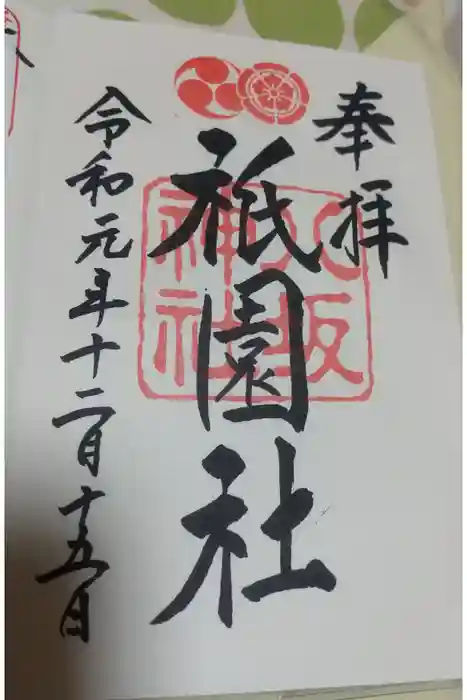 奉拝
八坂神社
祇園社
令和元年十二月十五日